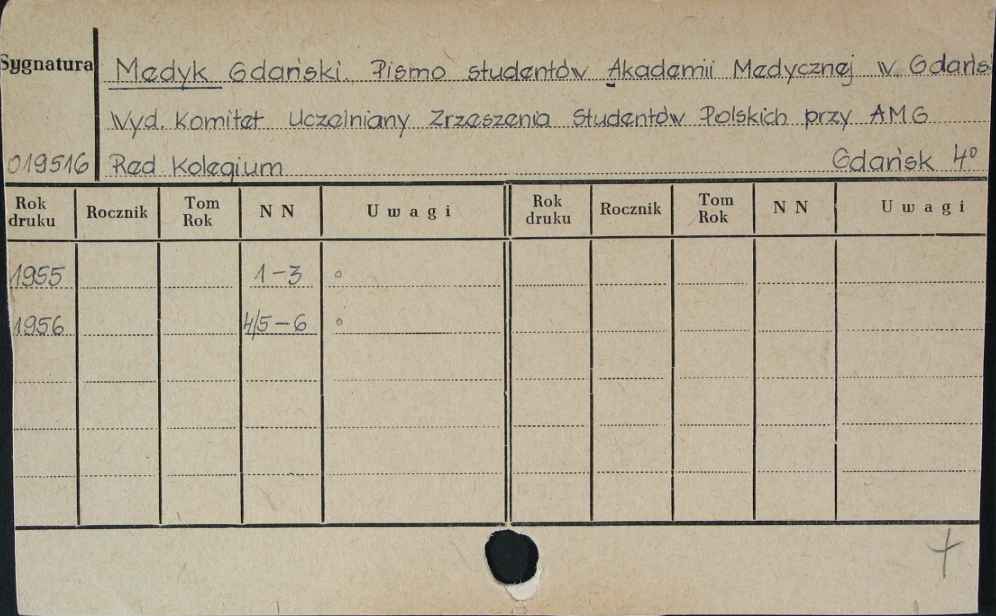 Sygnatura Medyk Gdański. Pismo studentów Akademii Medycznej w Gdańs
Wyd. Komitet Uczelniany Zrzeszenia Studentów Polskich przy AMG
019516 Red Kolegium Gdańsk 4º
Rok druku Rocznik Tom Rok NN Uwagi Rok druku Rocznik Tom Rok NN Uwagi
1955 1-3 º
1956 4/5-6 º
+